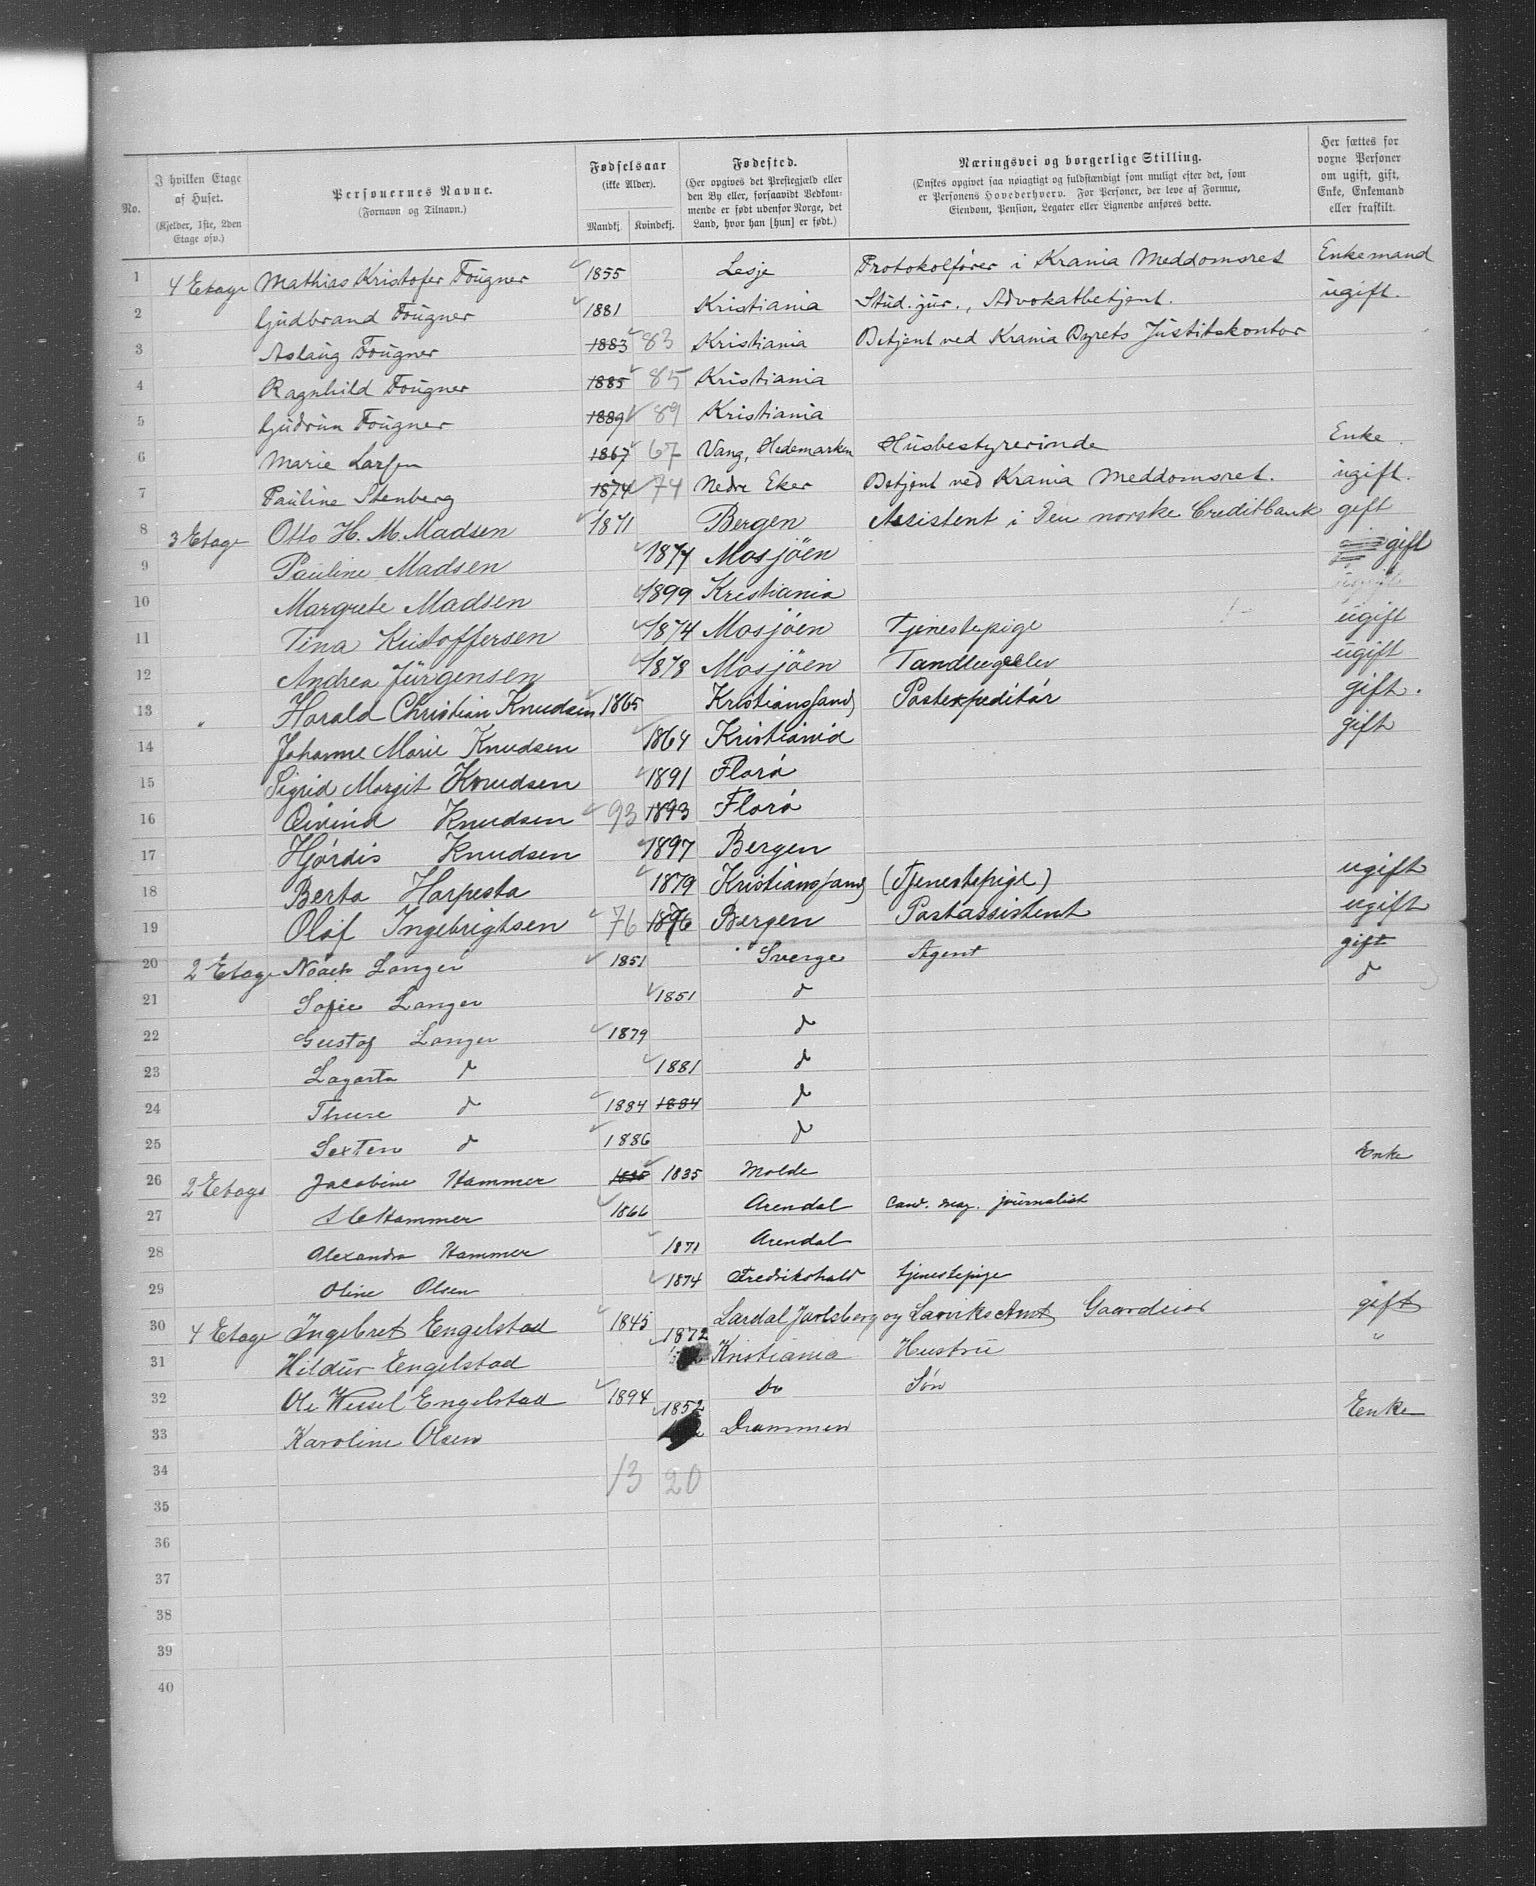 No.
I hvilken Etage af Huset.
(Kjelder, 1ste, 2den Etage osv.)
Personernes Navne.
(Fornavn og Tilnavn.)
Fødselsaar
(ikke Alder).
Mandkj. Kvindekj.
Fødested.
(Her opgives det Prestegjæld eller den By eller, forsaavidt Vedkommende er født udenfor Norge, det Land, hvor han [hun] er født.)
Næringsvei og borgerlige Stilling.
(Ønskes opgivet saa nøiagtigt og fuldstændigt som muligt efter det, som er Personens Hovederhverv. For Personer, der leve af Formue, Eiendom, Pension, Legater eller Lignende anføres dette.
Her sættes for voxne Personer om ugift, gift, Enke, Enkemand eller fraskilt.
1 4 Etage Mathias Kristofer Fougner 1855 Lesje Protokolfører i Krania Meddomsret Enkemand
2 Gudbrand Fougner 1881 Kristiania Stud. jur., Advokatbetjent. ugift.
3 Aslaug Fougner 1883 83 Kristiania Betjent ved Krania Byrets Justitskontor
4 Ragnhild Fougner 1885 85 Kristiania
5 Gudrun Fougner 1889 89 Kristiania
6 Marie Larsen 1867 67 Vang, Hedemarken Husbestyrerinde Enke.
7 Pauline Stenberg 1874 74 Nedre Eker Betjent ved Krania Meddomsret. ugift.
8 3 Etage Otto H. M. Madsen 1871 Bergen Assistent i Den norske Creditbank gift
9 Pauline Madsen 1874 Mosjöen gift
10 Margrete Madsen 1899 Kristiania ugift
11 Tina Kristoffersen 1874 Mosjöen Tjenestepige ugift
12 Andrea Jürgensen 1878 Mosjöen Tandlægeelev ugift
13 " Harald Christian Knudsen 1865 Kristianssand Postexpeditör gift.
14 Johanne Marie Knudsen 1864 Kristiania gift
15 Sigrid Margit Knudsen 1891 Florö
16 Eivind Knudsen 93 1893 Florö
17 Hjördis Knudsen 1897 Bergen
18 Berta Harpesta 1879 Kristianssand (Tjenestepige) ugift
19 Olaf Ingebrigtsen 76 1876 Bergen Postassistent ugift
20 2 Etage Noach Langer 1851 Sverge Agent gift
21 Sofie Langer 1851 d d
22 Gustaf Langer 1879 d
23 Lagarta d 1881 d
24 Thure d 1884 1884 d
25 Sexten d 1886 d
26 2 Etage Jacobine Hammer 1835 1835 Molde Enke
27 S C Hammer 1866 Arendal Cand. mag. journalist
28 Alexandra Hammer 1871 Arendal
29 Oline Olsen 1874 Fredrikshald tjenestepige
30 4 Etage Ingebret Engelstad 1845 Lardal Jarlsberg og Larviks Amt Gaardeier gift
31 Hildur Engelstad 1872 Kristiania Hustru "
32 Ole Wessel Engelstad 1894 Do Søn
33 Karoline Olsen 1852 Drammen Enke
34 13 20
35
36
37
38
39
40